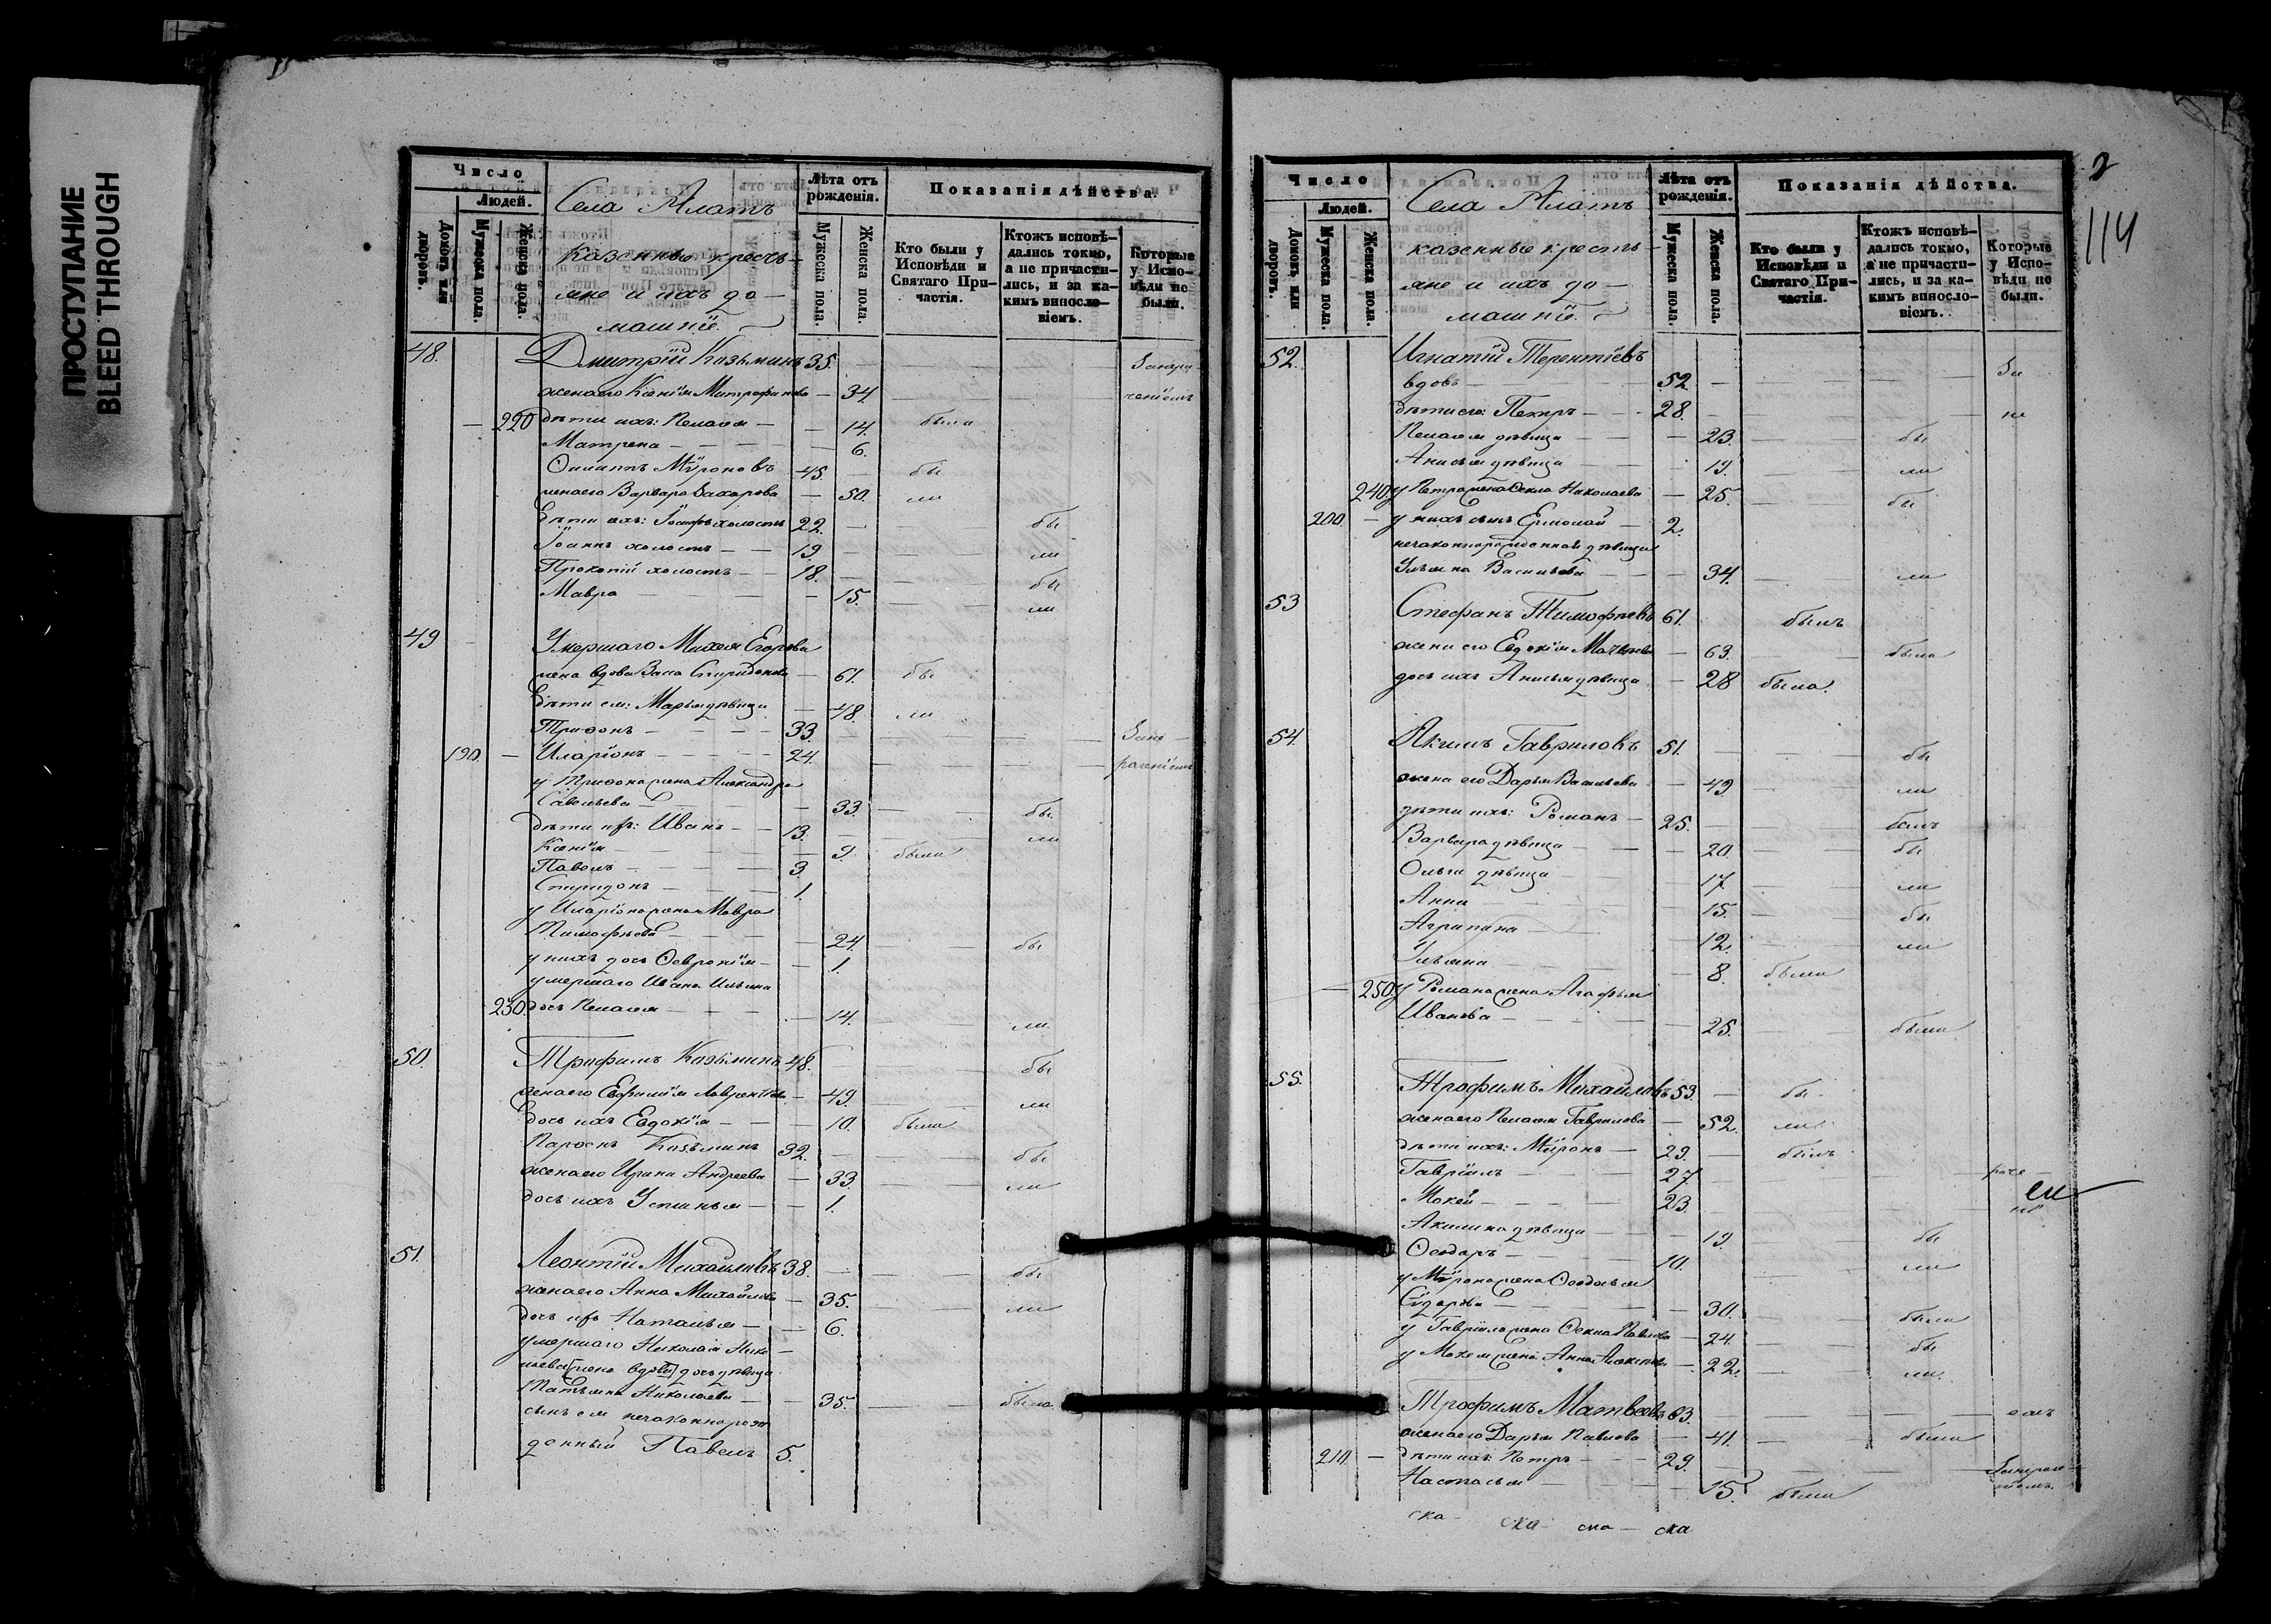 ПРОСТУПАНИЕ
BLEED THROUGH
Число
Людей.
Домовъ или дворовъ.
Мужеска пола.
Женска пола.
Села Алатъ
казенные кресть-
яне и ихъ до-
машніе
Лѣта отъ рожденія.
Мужеска пола.
Женска пола.
Показанія дѣйства.
Кто были у Исповѣди и Святаго Причастія.
Ктожъ исповѣ-
дались токмо,
а не причасти-
лись, и за ка-
кимъ винословіемъ.
Которые у Испо-
вѣди не были.
48. Дмитрій Козьминъ 35.
жена его Ксенія Митрофанова 34.
220 дѣти ихъ: Пелагея 14. была
Матрена 6.
Филиппъ Мѵроновъ 45. бы
жена его Варвара Захарова 50. ли
дѣти ихъ: Іосифъ холостъ 22. бы
Іоаннъ холостъ 19. ли
Прокопій холостъ 18. бы
Мавра 15. ли
49 Умершаго Михея Егорова
жена вдова Васса Спиридонова 61. бы
дѣти ея: Марья дѣвица 48. ли
Трифонъ 33.
190. Иларіонъ 24.
у Трифона жена Александра
Савельева 33. бы
дѣти ихъ: Иванъ 13. ли
Ксенія 9. была
Павелъ 3.
Спиридонъ 1.
у Иларіона жена Мавра
Тимофѣева 24. бы
у нихъ дочь Февронія 1.
умершаго Ивана Ильина
230 дочь Пелагея 14. ли
50. Трофимъ Козьминъ 48. бы
жена его Евфимія Лаврентьева 49. ли
дочь ихъ Евдокія 10. была
Парфенъ Козьминъ 32. бы
жена его Ирина Андреева 33. ли
дочь ихъ Устинья 1.
51. Леонтій Михайловъ 38. бы
жена его Анна Михайлова 35. ли
дочь ихъ Наталья 6.
умершаго Николая
жена вдова дочь дѣвица
Татьяна Николаева 35. была
сынъ ея незаконнорож
денный Павелъ 5.
2
114
Число
Людей.
Домовъ или дворовъ.
Мужеска пола.
Женска пола.
Села Алатъ
казенные кресть-
яне и ихъ до-
машніе
Лѣта отъ рожденія.
Мужеска пола.
Женска пола.
Показанія дѣйства.
Кто были у Исповѣди и Святаго Причастія.
Ктожъ исповѣ-
дались токмо,
а не причасти-
лись, и за ка-
кимъ винословіемъ.
Которые у Испо-
вѣди не были.
52. Игнатій Терентіевъ
вдовъ 52.
дѣти его: Петръ 28.
Пелагея дѣвица 23. бы
Анисья дѣвица 19. ли
240 у Петра жена Фекла Николаева 25. бы
200. у нихъ сынъ Ермолай 2.
незаконнорожденной дѣвица
Ульяна Васильева 34. ли
53 Стефанъ Тимофѣевъ 61. былъ
жена его Евдокія Матвѣева 63. была
дочь ихъ Анисья дѣвица 28 была.
54. Якимъ Гавриловъ 51. бы
жена его Дарья Васильева 49. ли
дѣти ихъ: Романъ 25. былъ
Варвара дѣвица 20. бы
Ольга дѣвица 17. ли
Анна 15. бы
Агрипина 12. ли
Ульяна 8. была
250 у Романа жена Агафья
Иванова 25. была
55. Трофимъ Михайловъ 53. бы
жена его Пелагея Гаврилова 52. ли
дѣти ихъ: Мѵронъ 29. былъ
Гавріилъ 27
Мокей 23.
Акилина дѣвица 19. бы
Феодоръ 10. ли
у Мѵрона жена Феодосья
Сидорова 30. была
у Гавріила жена Фекла Павлова 24. бы
у Мокея жена Анна Алексѣева 22. ли.
Трофимъ Матвеевъ 63.
жена его Дарья Павлова 41. была
210. дѣти ихъ: Петръ 29.
Настасья 15. была
ска- ска- ска- ска